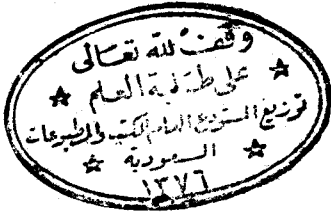 وقف لله تعالى
على طلبة العلم
توزيع المستودع العام للكتب والمطبوعات
السعودية
١٣٧٦